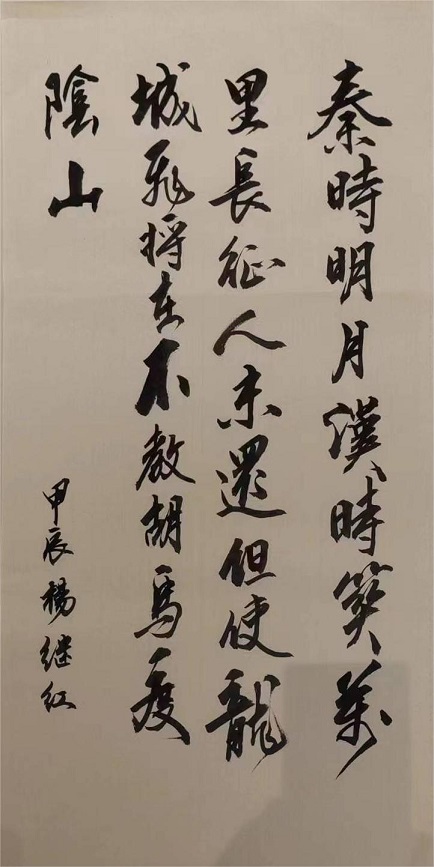 秦時明月漢時關萬
里長征人未還但使龍
城飛将在不教胡馬度
陰山
甲辰楊继红